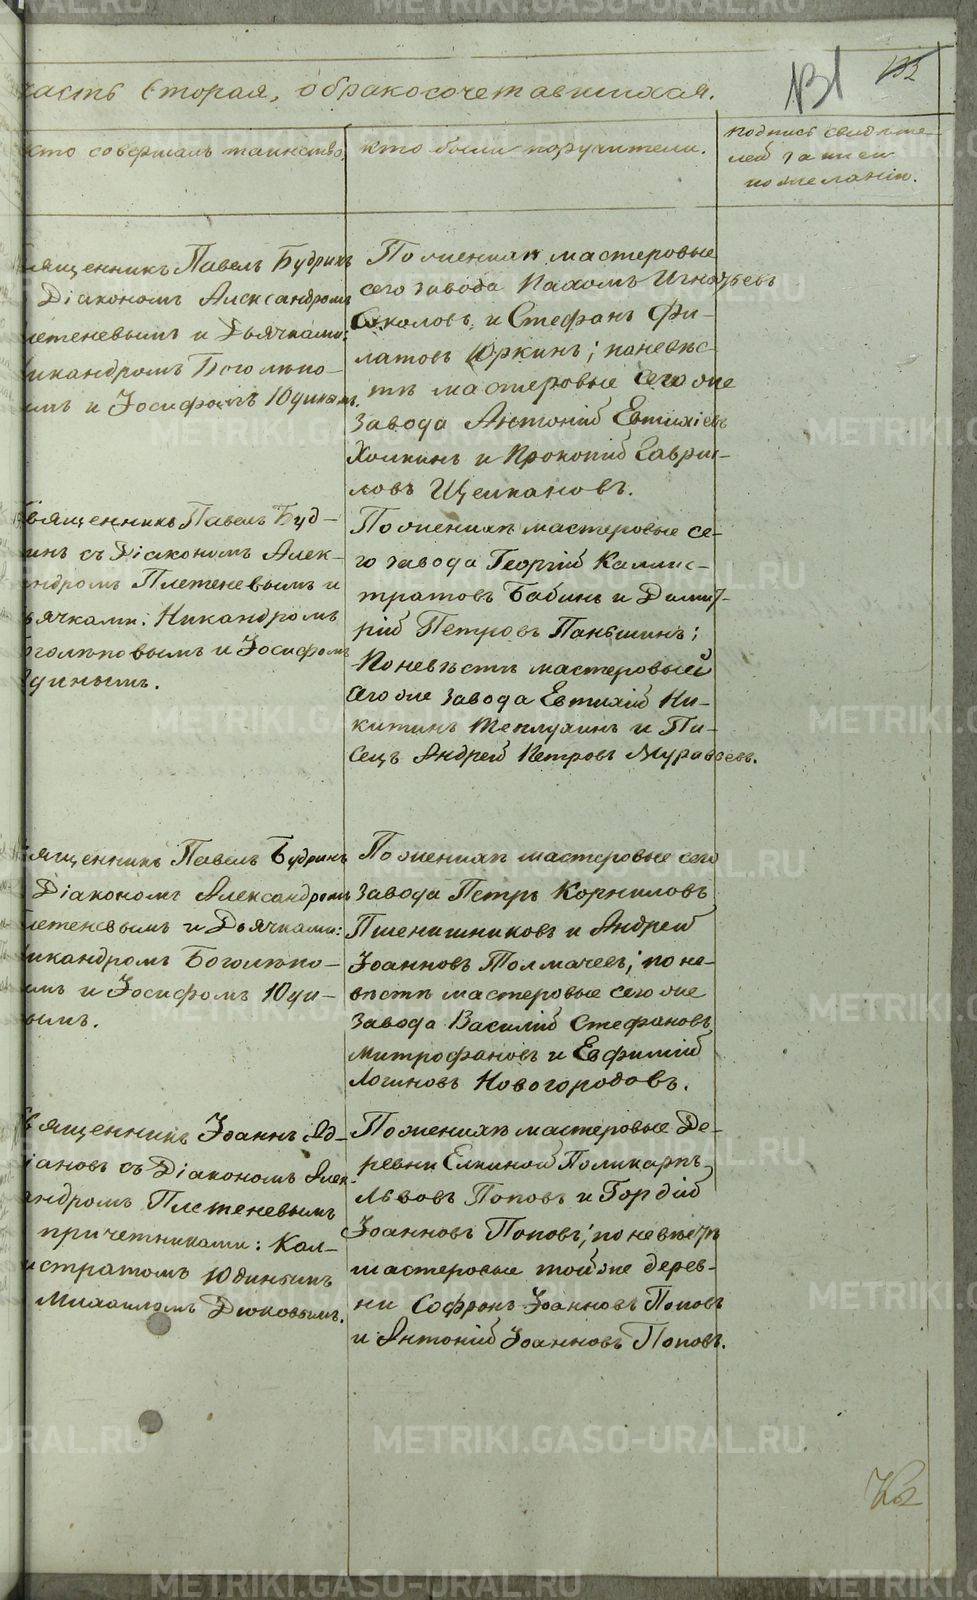 часть вторая, о бракосочетавшихся.
131
132
кто совершалъ таинство
кто были поручители.
подпись свидѣте-
лей записи
по желанію.
священникъ Павелъ Будринъ
Діакономъ Александромъ
летеневымъ и Дьячками:
икандромъ Боголѣпо-
ымъ и Іосифомъ Юдинымъ.
По женихѣ мастеровые
сего завода Пахомъ Игнатьевъ
Соколовъ, и Стефанъ Фи-
латовъ Юркинъ; по невѣс-
тѣ мастеровые сего же
завода Антоній Евтихіевъ
Холкинъ и Прокопій Гаври-
ловъ Щелкановъ.
священникъ Павелъ Буд-
инъ съ Діакономъ Алек-
андромъ Плетеневымъ и
ьячками: Никандромъ
оголѣповымъ и Іосифомъ
динымъ.
По женихѣ мастеровые се-
го завода Георгій Каллис-
тратовъ Бабинъ и Димит-
рій Петровъ Паньшинъ;
По невѣстѣ мастеровый
сего же завода Евтихій Ни-
китинъ Теплухинъ и Пи-
сецъ Андрей Петровъ Муравьевъ.
вященникъ Павелъ Будринъ
Діакономъ Александромъ
летеневымъ и Дьячками:
икандромъ Боголѣпо-
ымъ и Іосифомъ Юди-
ымъ.
По женихѣ мастеровые сего
завода Петръ Корниловъ
Пшенишниковъ и Андрей
Іоанновъ Толмачевъ; по не-
вѣстѣ мастеровые сего же
завода Василій Стефановъ
Митрофановъ и Евфимій
Логиновъ Новогородовъ.
вященникъ Іоаннъ Ад-
іановъ съ Діакономъ Алек-
андромъ Плетеневымъ
причетниками: Кал-
истратомъ Юдинымъ
Михаиломъ Дюковымъ.
По женихѣ мастеровые Де-
ревни Елкиной Поликарпъ
Львовъ Поповъ и Гордій
Іоанновъ Поповъ; по невѣстѣ
мастеровые той же дерев-
ни Софронъ Іоанновъ Поповъ
и Антоній Іоанновъ Поповъ.
METRIKI.GASO-URAL.RU